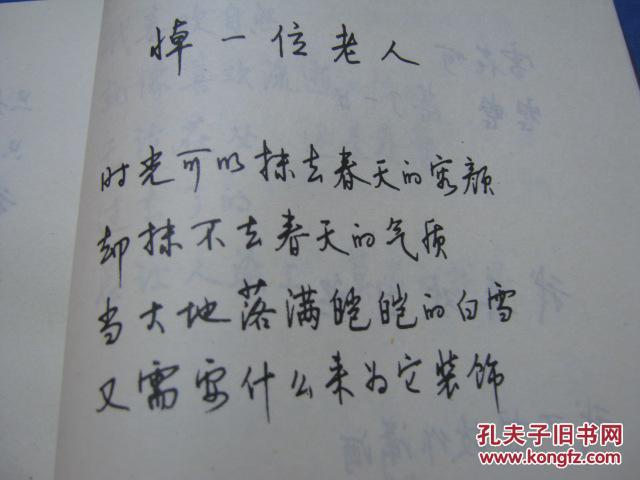 悼一位老人
时光可以抹去春天的容颜
却抹不去春天的气质
当大地落满皑皑的白雪
又需要什么来为它装饰
孔夫子旧书网
www.kongfz.com